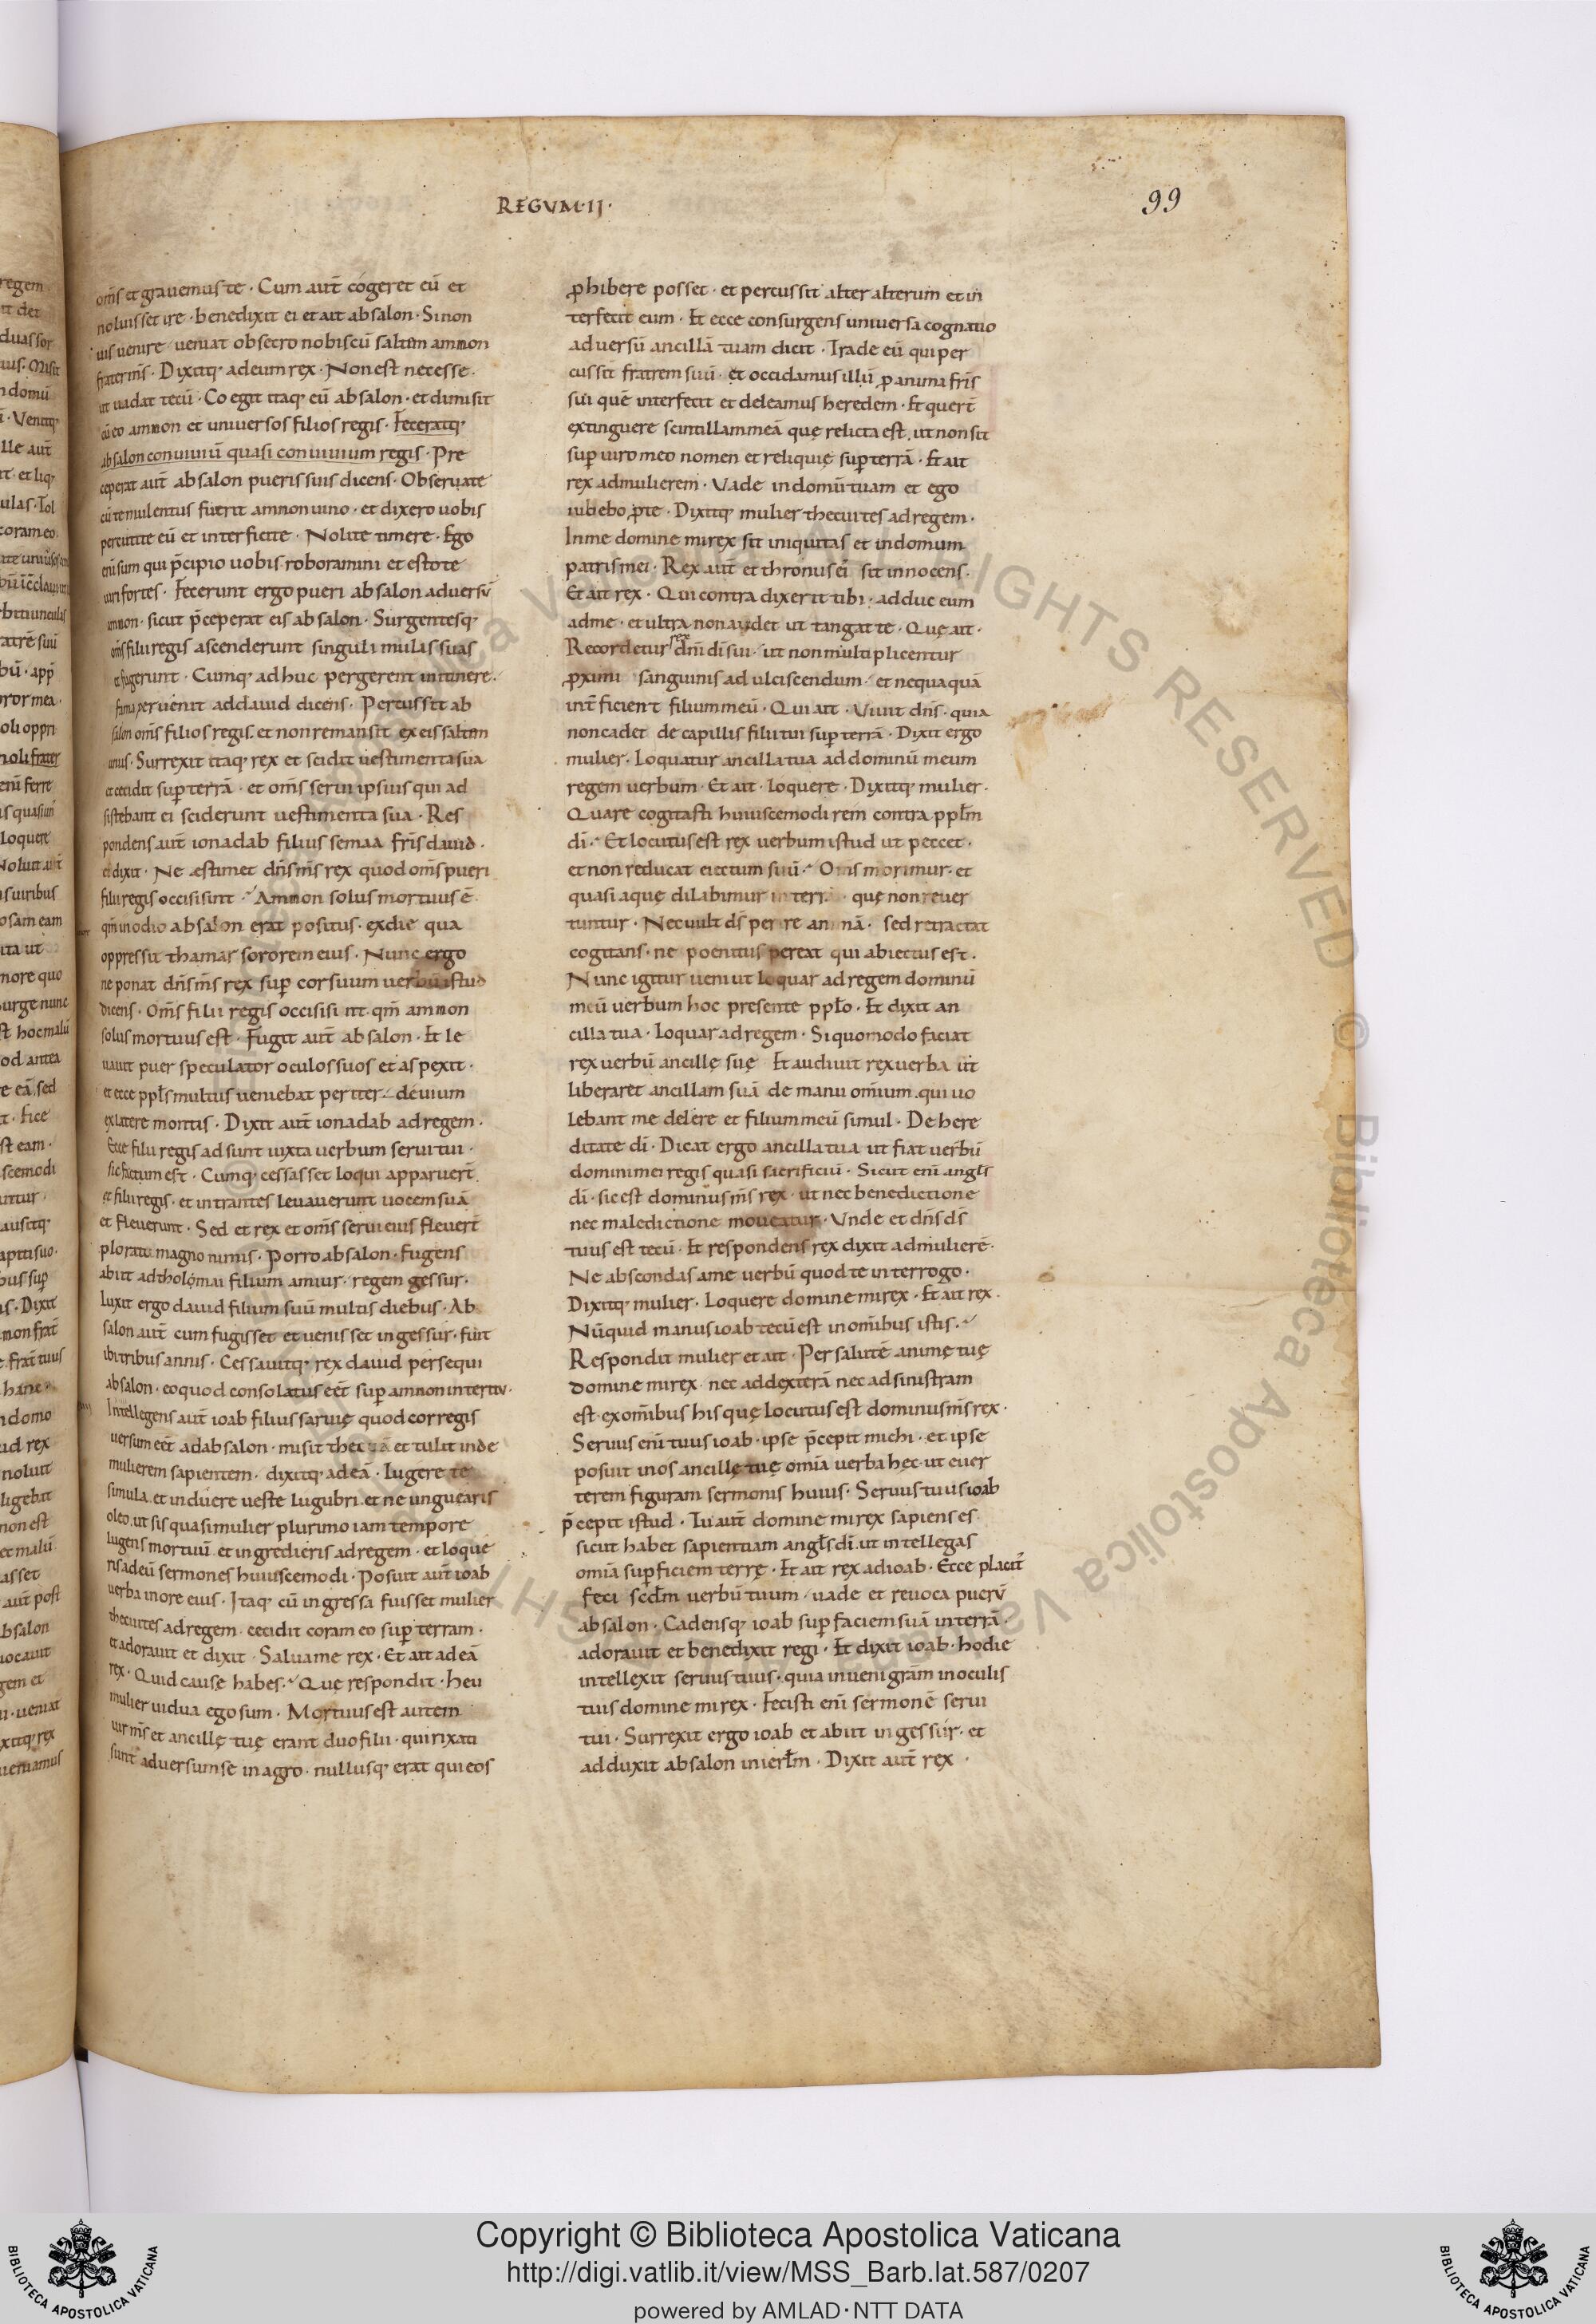 REGVM·II·
99
om̄s et grauemus te · Cum aut̄ cógeret eū et
noluisset ire · benedixit ei et ait absalon · Si non
uis uenire ueniat obsecro nobiscū saltem ammon
frater m̄s · Dixitq; ad eum rex · Non est necesse ·
ut uadat tecū · Coegit itaq; eū absalon · et dimisit
cū eo ammon et uniuersos filios regis · Feceratq;
absalon conuiuiū quasi conuiuium regis · Pre
ceperat aut̄ absalon pueris suis dicens · Obseruate
cū temulentus fuerit amnon uino · et dixero uobis
percutite eū et interficite · Nolite timere · Ego
enī sum qui p̄cipio uobis roboramini et estote
uiri fortes · Fecerunt ergo pueri absalon aduersū
ammon · sicut p̄ceperat eis absalon · Surgentesq;
om̄s filii regis ascenderunt singuli mulas suas
et fugerunt · Cumq; adhuc pergerent in itinere ·
fama peruenit ad dauid dicens · Percussit ab
salon om̄s filios regis · et non remansit ex eis saltem
unus · Surrexit itaq; rex et scidit uestimenta sua
et cecidit sup terrā · et om̄s serui ipsius qui ad
sistebant ei sciderunt uestimenta sua · Res
pondens aut̄ ionadab filius semaa fr̄is dauid ·
et dixit · Ne estimet dn̄s m̄s rex quod om̄s pueri
filii regis occisi sint · Ammon solus mortuus ē
qm̄ in odio absalon erat positus · ex die qua
oppressit thamar sororem eius · Nunc ergo
ne ponat dn̄s m̄s rex sup cor suum uerbū istud
dicens · Om̄s filii regis occisi sint · qm̄ ammon
solus mortuus est · Fugit aut̄ absalon · Et le
uauit puer speculator oculos suos et aspexit ·
et ecce ppl̄s multus ueniebat per iter deuium
ex latere montis · Dixit aut̄ ionadab ad regem ·
Ecce filii regis adsunt iuxta uerbum serui tui ·
sic factum est · Cumq; cessasset loqui apparuer̄t
et filii regis · et intrantes leuauerunt uocem suā
et fleuerunt · Sed et rex et om̄s serui eius fleuer̄t
ploratu magno nimis · Porro absalon · fugens
abiit ad tholomai filium amiur · regem gessur ·
Luxit ergo dauid filium suū multis diebus · Ab
salon aut̄ cum fugisset et uenisset in gessur · fuit
ibi tribus annis · Cessauitq; rex dauid persequi
absalon · eo quod consolatus eēt sup amnon interitu ·
Intellegens aut̄ ioab filius saruię quod cor regis
uersum eēt ad absalon · misit thecuā et tulit inde
mulierem sapientem · dixitq; ad eā · lugere te
simula · et induere ueste lugubri · et ne unguearis
oleo · ut sis quasi mulier plurimo iam tempore
lugens mortuū · et ingredieris ad regem · et loque
ris ad eū sermones huiuscemodi · Posuit aut̄ ioab
uerba in ore eius · Itaq; cū ingressa fuisset mulier
thecuites ad regem · cecidit coram eo sup terram ·
et adorauit et dixit · Salua me rex · Et ait ad eā
rex · Quid cause habes · Quę respondit · Heu
mulier uidua ego sum · Mortuus est autem
uir m̄s et ancillę tuę erant duo filii · qui rixati
sunt aduersum se in agro · nullusq; erat qui eos
phibere posset · et percussit alter alterum et in
terfecit eum · Et ecce consurgens uniuersa cognatio
aduersū ancillā tuam dicit · Trade eū qui per
cussit fratrem suū · et occidamus illū p anima fr̄is
sui quē interfecit et deleamus heredem · Et quer̄t
extinguere scintillam meā quę relicta est · ut non sit
sup uiro meo nomen et reliquię sup terrā · Et ait
rex ad mulierem · Vade in domū tuam et ego
iubebo p te · Dixitq; mulier thecuites ad regem ·
In me domine mi rex sit iniquitas et in domum
patris mei · Rex aut̄ et thronus ei sit innocens ·
Et ait rex · Qui contra dixerit tibi · adduc eum
ad me · et ultra non audet ut tangat te · Quę ait ·
Recordetur rex dn̄i dī sui · ut non multiplicentur
pximi sanguinis ad ulciscendum · et nequaquā
int̄ficient filium meū · Qui ait · Viuit dn̄s · quia
non cadet de capillis filii tui sup terrā · Dixit ergo
mulier · Loquatur ancilla tua ad dominū meum
regem uerbum · Et ait · loquere · Dixitq; mulier ·
Quare cogitasti huiuscemodi rem contra ppl̄m
dī · Et locutus est rex uerbum istud ut peccet ·
et non reducat eiectum suū · Om̄s morimur · et
quasi aquę dilabimur in terrā · quę non reuer
tuntur · Nec uult ds̄ perire animā · sed retractat
cogitans · ne poenitus pereat qui abiectus est ·
Nunc igitur ueni ut loquar ad regem dominū
meū uerbum hoc presente pplo · Et dixit an
cilla tua · Loquar ad regem · Si quomodo faciat
rex uerbū ancillę suę Et audiuit rex uerba ut
liberaret ancillam suā de manu om̄ium · qui uo
lebant me delere et filium meū simul · De here
ditate dī · Dicat ergo ancilla tua ut fiat uerbū
domini mei regis quasi sacrificiū · Sicut enī angl̄s
dī · sic est dominus m̄s rex · ut nec benedictione
nec maledictione moueatur · Vnde et dn̄s ds̄
tuus est tecū · Et respondens rex dixit ad mulierē ·
Ne abscondas a me uerbū quod te interrogo ·
Dixitq; mulier · Loquere domine mi rex · Et ait rex ·
Nūquid manus ioab tecū est in om̄ibus istis ·
Respondit mulier et ait · Per salutē animę tuę
domine mi rex · nec ad dexterā nec ad sinistram
est · ex om̄ibus his quę locutus est dominus m̄s rex ·
Seruus enī tuus ioab · ipse p̄cepit michi · et ipse
posuit in os ancillę tuę omīa uerba hęc · ut euer
terem figuram sermonis huius · Seruus tuus ioab
p̄cepit istud · Tu aut̄ domine mi rex sapiens es
sicut habet sapientiam angl̄s dī · ut intellegas
omīa supficiem terrę · Et ait rex ad ioab · Ecce placit̄
feci scd̄m uerbū tuum · uade et reuoca puerū
absalon · Cadensq; ioab sup faciem suā in terrā ·
adorauit et benedixit regi · Et dixit ioab · hodie
intellexit seruus tuus · quia inueni grām in oculis
tuis domine mi rex · Fecisti enī sermonē serui
tui · Surrexit ergo ioab et abiit in gessúr · et
adduxit absalon in ierl̄m · Dixit aut̄ rex ·
Copyright © Biblioteca Apostolica Vaticana
http://digi.vatlib.it/view/MSS_Barb.lat.587/0207
powered by AMLAD·NTT DATA
BIBLIOTECA APOSTOLICA VATICANA
BIBLIOTECA APOSTOLICA VATICANA